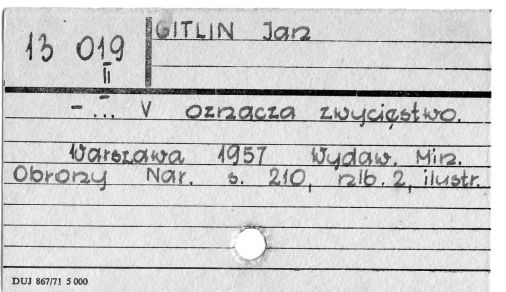 GITLIN Jan
13 019
II
- ... V oznacza zwycięstwo.
Warszawa 1957 Wydaw. Min.
Obrony Nar. s. 210, nlb. 2, ilustr.
DUJ 867/71 5 000